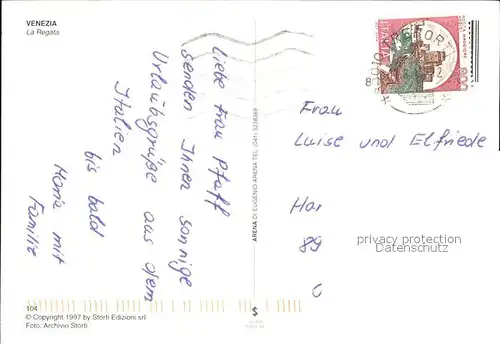 VENEZIA
La Regata
Liebe Frau Pfaff
senden Ihnen sonnige
Urlaubsgrüße aus dem
Italien
bis bald
Maria mit
Familie
104
© Copyright 1997 by Storti Edizioni srl
Foto: Archivio Storti
ARENA DI EUGENIO ARENA TEL. (041) 5228389
S
ITALIA
800
Frau
Luise und Elfriede
Har
89
privacy protection
Datenschutz